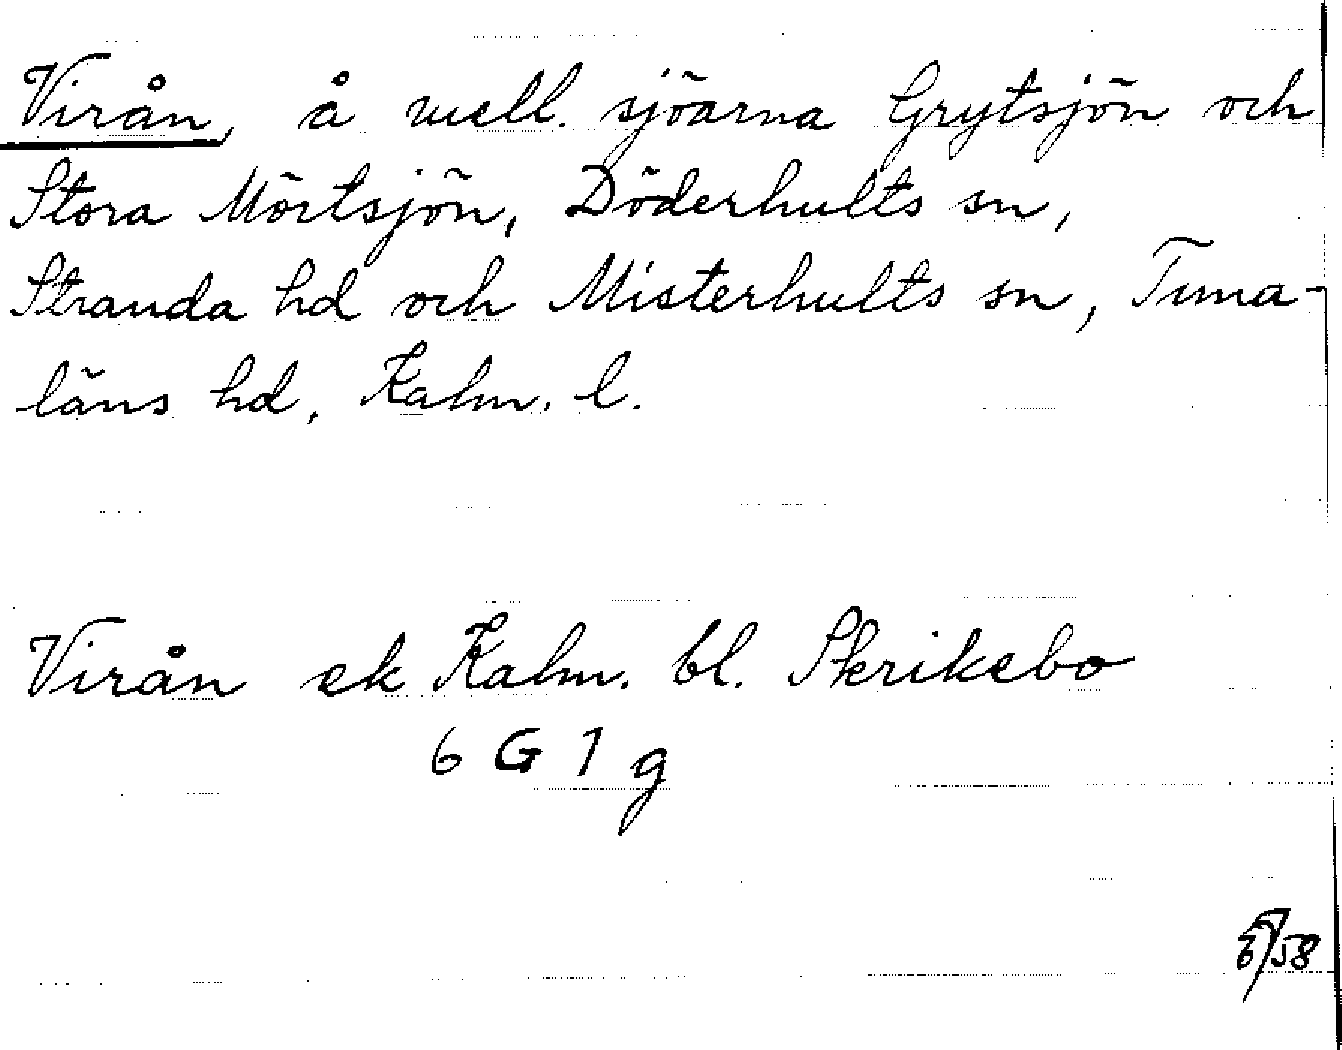 Virån, å mell. sjöarna Grytsjön och
Stora Mörtsjön, Döderhults sn,
Stranda hd och Misterhults sn, Tuna-
läns hd, Kalm. l.
Virån ek Kalm. bl. Skrikebo
6 G 1 g